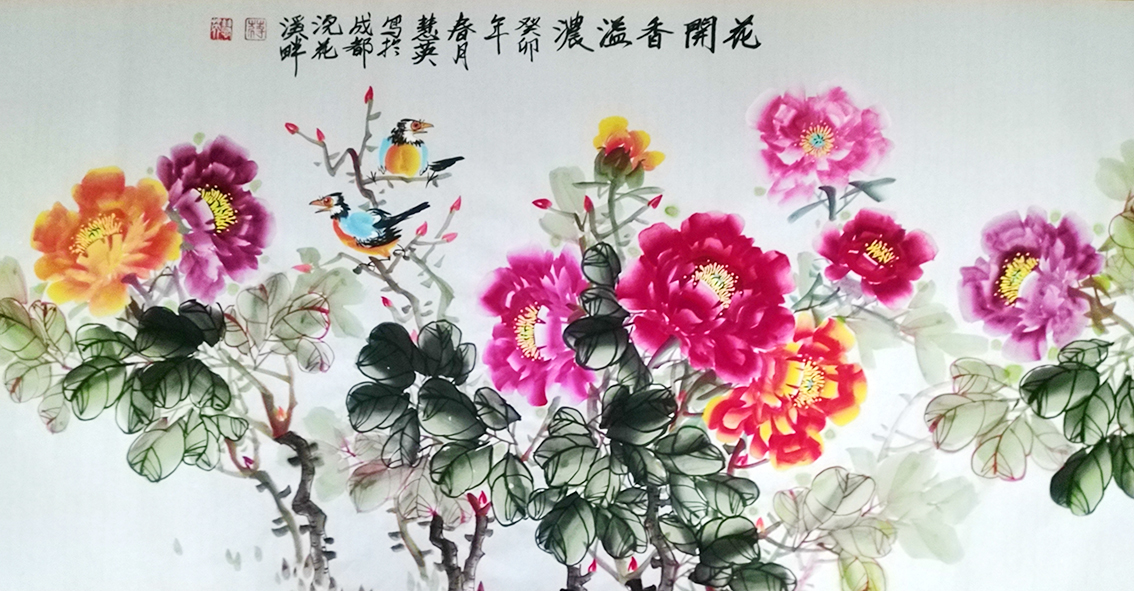 花開香溢濃
癸卯
年
春月
慧英
寫於
成都
浣花
溪畔